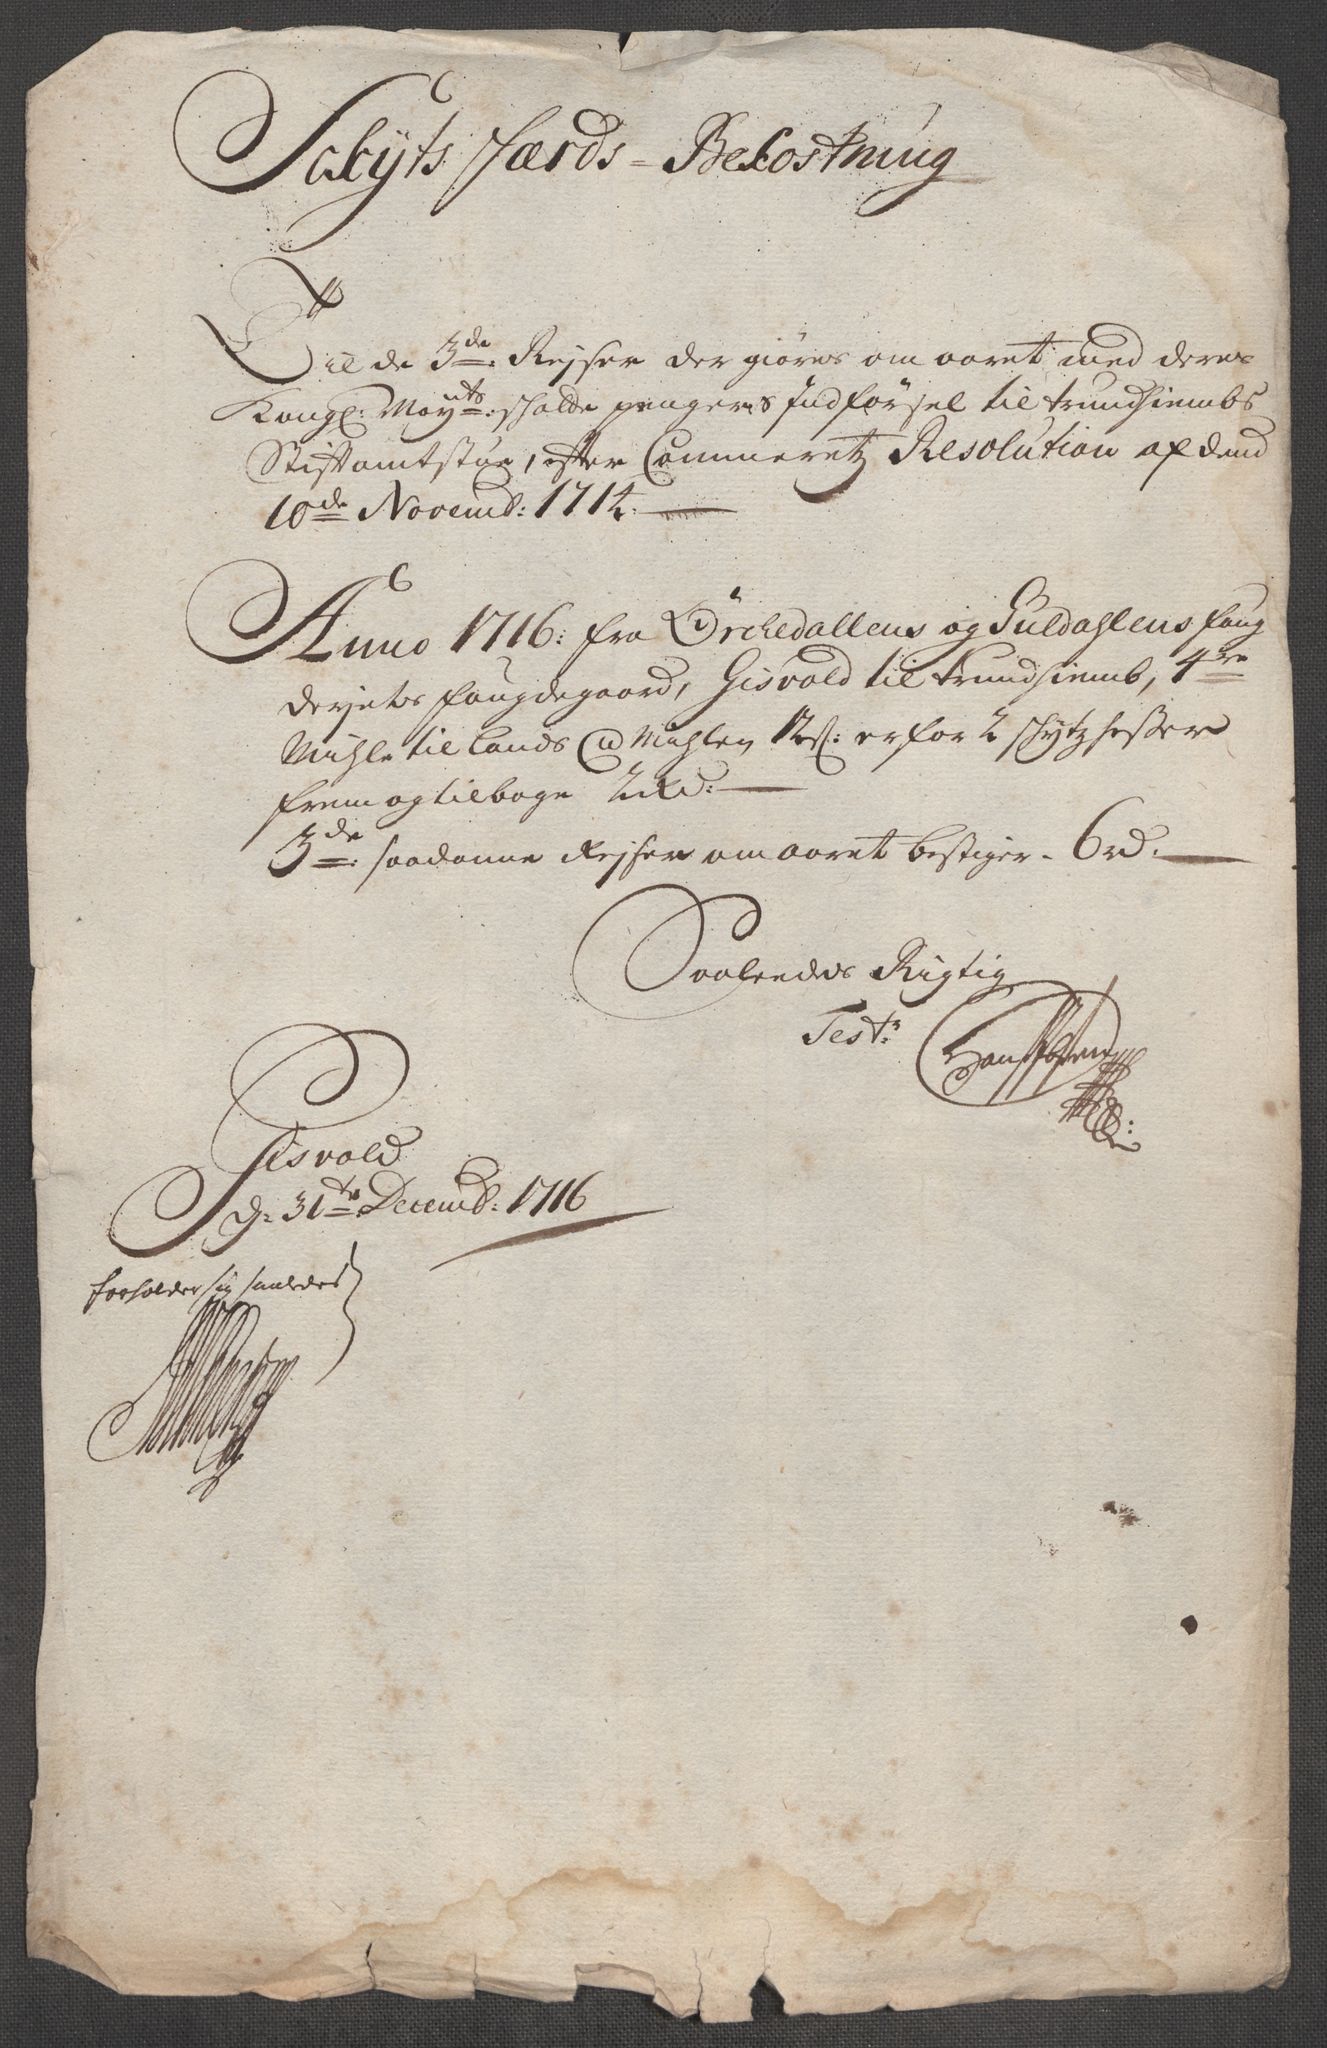 Schyts færds - Bekostning
Til de 3de: Rejser der giøres om aaret med deres
Kongl: Mayts: schatte pengers Indførsel til trundhiembs
Stiftamtstue, efter Cammeretz Resolution af dend
10de Novemb: 1714.
Anno 1716: fra Ørchedallens og Guldahlens foug
derjets fougdegaard, Gisvold til trundhiemb, 4re
Miihle til lands @ Miihlen 12s: er for 2 schytz hester
frem og tilbage 2Rd:
3de: saadanne Rejser om aaret bestiger - 6rd.
Saaledes Rigtig
Test:
Gisvold
d: 31te Decemb: 1716
forholder sig saaledes